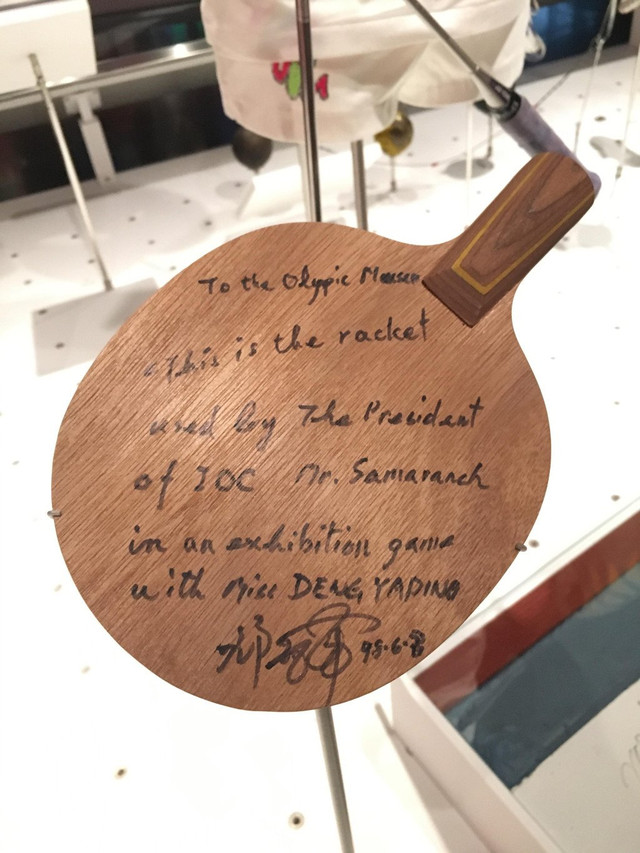 To the Olyppic Museum
This is the racket
used by The President
of IOC Mr. Samaranch
in an exhibition game
with Miss DENG YAPING
98.6.